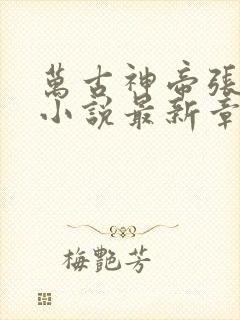 萬古神帝張
小說最新章
梅艷芳